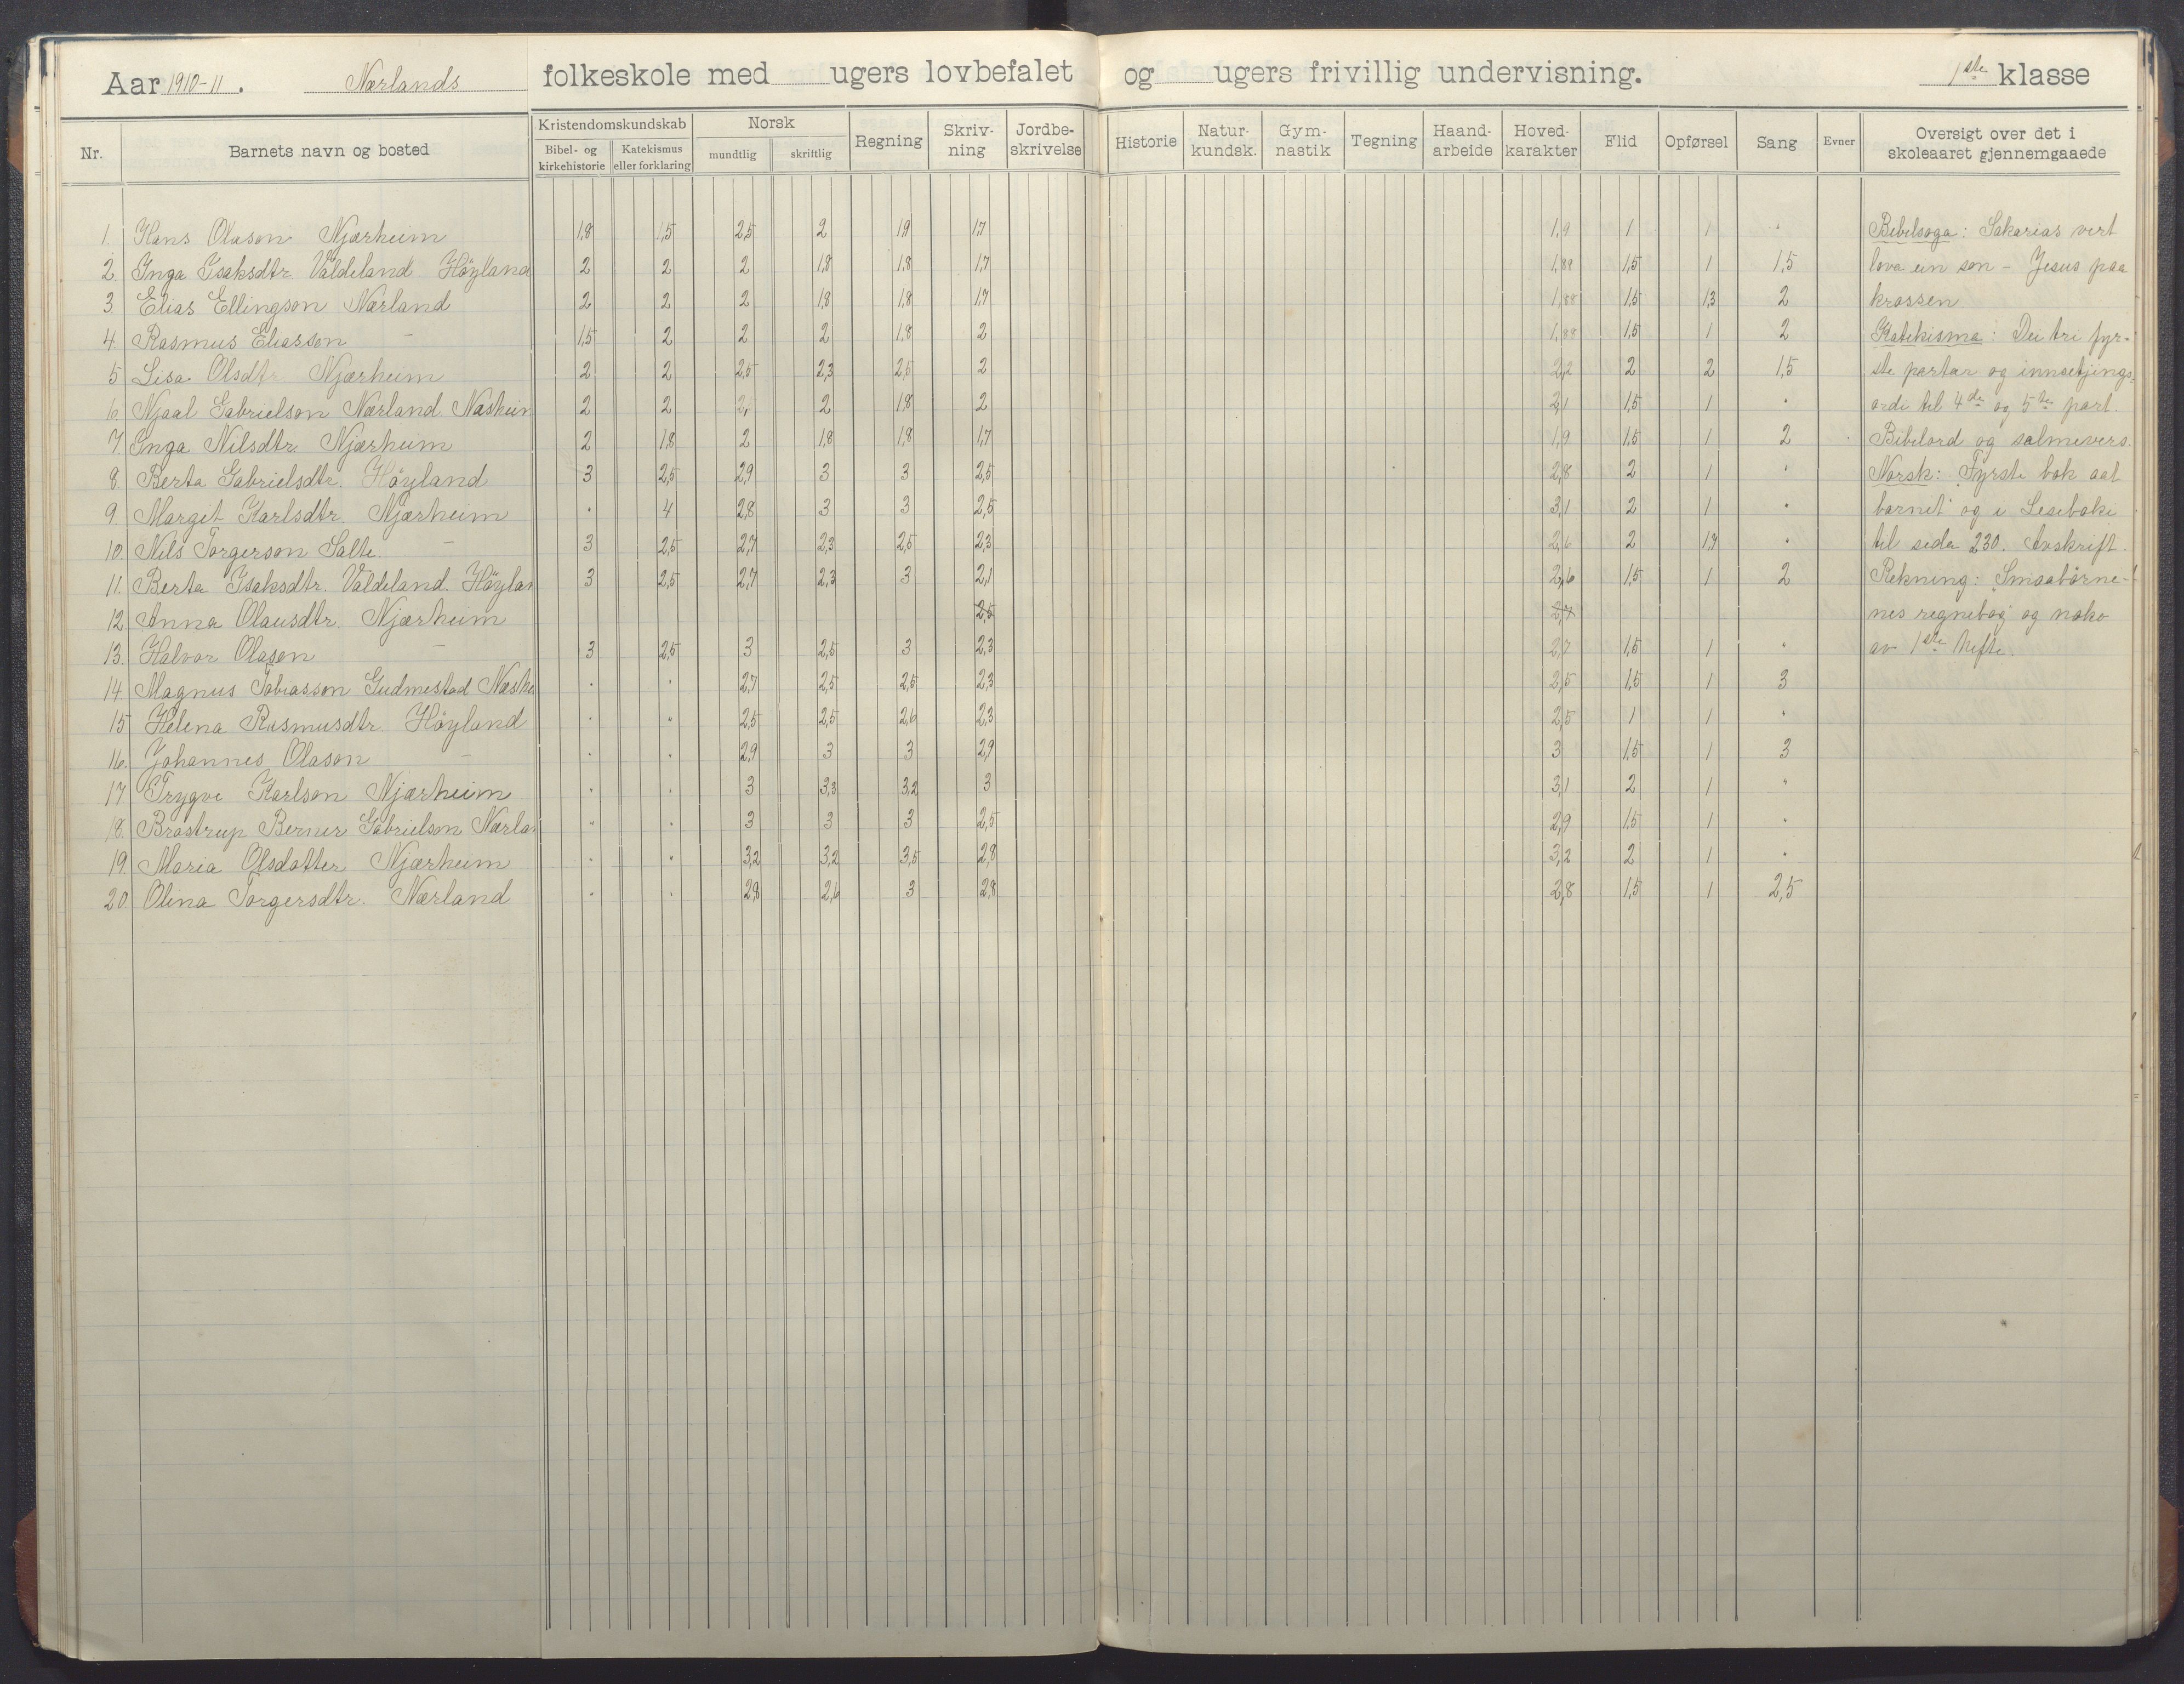 Aar 1910-11. Nærlands folkeskole med ugers lovbefalet og ugers frivillig undervisning. 1ste klasse
Nr. Barnets navn og bosted Kristendomskundskab Bibel- og kirkehistorie Katekismus eller forklaring Norsk mundtlig skriftlig Regning Skriv-ning Jordbe-skrivelse Historie Natur-kundsk. Gym-nastik Tegning Haand-arbeide Hoved-karakter Flid Opførsel Sang Evner Oversigt over det i skoleaaret gjennemgaaede
1. Hans Olason Njærheim 1,8 1,5 2,5 2 1,9 1,7 1,9 1 1 " Bibelsoga: Sakarias vert
2. Inga Isaksdtr. Valdeland Höyland 2 2 2 1,8 1,8 1,7 1,88 1,5 1 1,5 lova ein son - Jesus paa
3. Elias Ellingson Nærland 2 2 2 1,8 1,8 1,7 1,88 1,5 1,3 2 krossen
4. Rasmus Eliasson — 1,5 2 2 2 1,8 2 1,88 1,5 1 2 Katekisma: Dei tri fyr-
5. Lisa Olsdtr. Njærheim 2 2 2,5 2,3 2,5 2 2,2 2 2 1,5 ste partar og innsetjings-
6. Njaal Gabrielson Nærland Næsheim 2 2 2 1,8 2 2,1 1,5 1 " ordi til 4de og 5te part.
7. Inga Nilsdtr. Njærheim 2 1,8 2 1,8 1,8 1,7 1,9 1,5 1 2 Bibelord og salmevers.
8. Berta Gabrielsdtr. Höyland 3 2,5 2,9 3 3 2,5 2,8 2 1 " Norsk: Fyrste bok aat
9. Margit Karlsdtr. Njærheim " 4 2,8 3 3 2,5 3,1 2 1 " barnet og i Leseboki
10. Nils Torgerson Salte. — 3 2,5 2,7 2,3 2,5 2,3 2,6 2 1,7 " til sida 230. Avskrift.
11. Berta Isaksdtr. Valdeland. Höylan 3 2,5 2,7 2,3 3 2,1 2,6 1,5 1 2 Rekning: Smaabørne-
12. Anna Olausdtr. Njærheim 2,5 2,7 nes regnebog og noko
13. Halvor Olason — 3 2,5 3 2,5 3 2,3 2,7 1,5 1 " av 1ste hefte.
14. Magnus Tobiasson Gudmestad Næshe " " 2,7 2,5 2,5 2,3 2,5 1,5 1 3
15 Helena Rasmusdtr. Höyland " " 2,5 2,5 2,6 2,3 2,5 1 1 "
16. Johannes Olason — " " 2,9 3 3 2,9 3 1,5 1 3
17 Trygve Karlson Njærheim " " 3 3,3 3,2 3 3,1 2 1 "
18. Brostrup Berner Gabrielson Nærla " " 3 3 3 2,5 2,9 1,5 1 "
19. Maria Olsdatter Njærheim " " 3,2 3,2 3,5 2,8 3,2 2 1 "
20 Olina Torgersdtr. Nærland " " 2,8 2,6 3 2,8 2,8 1,5 1 2,5